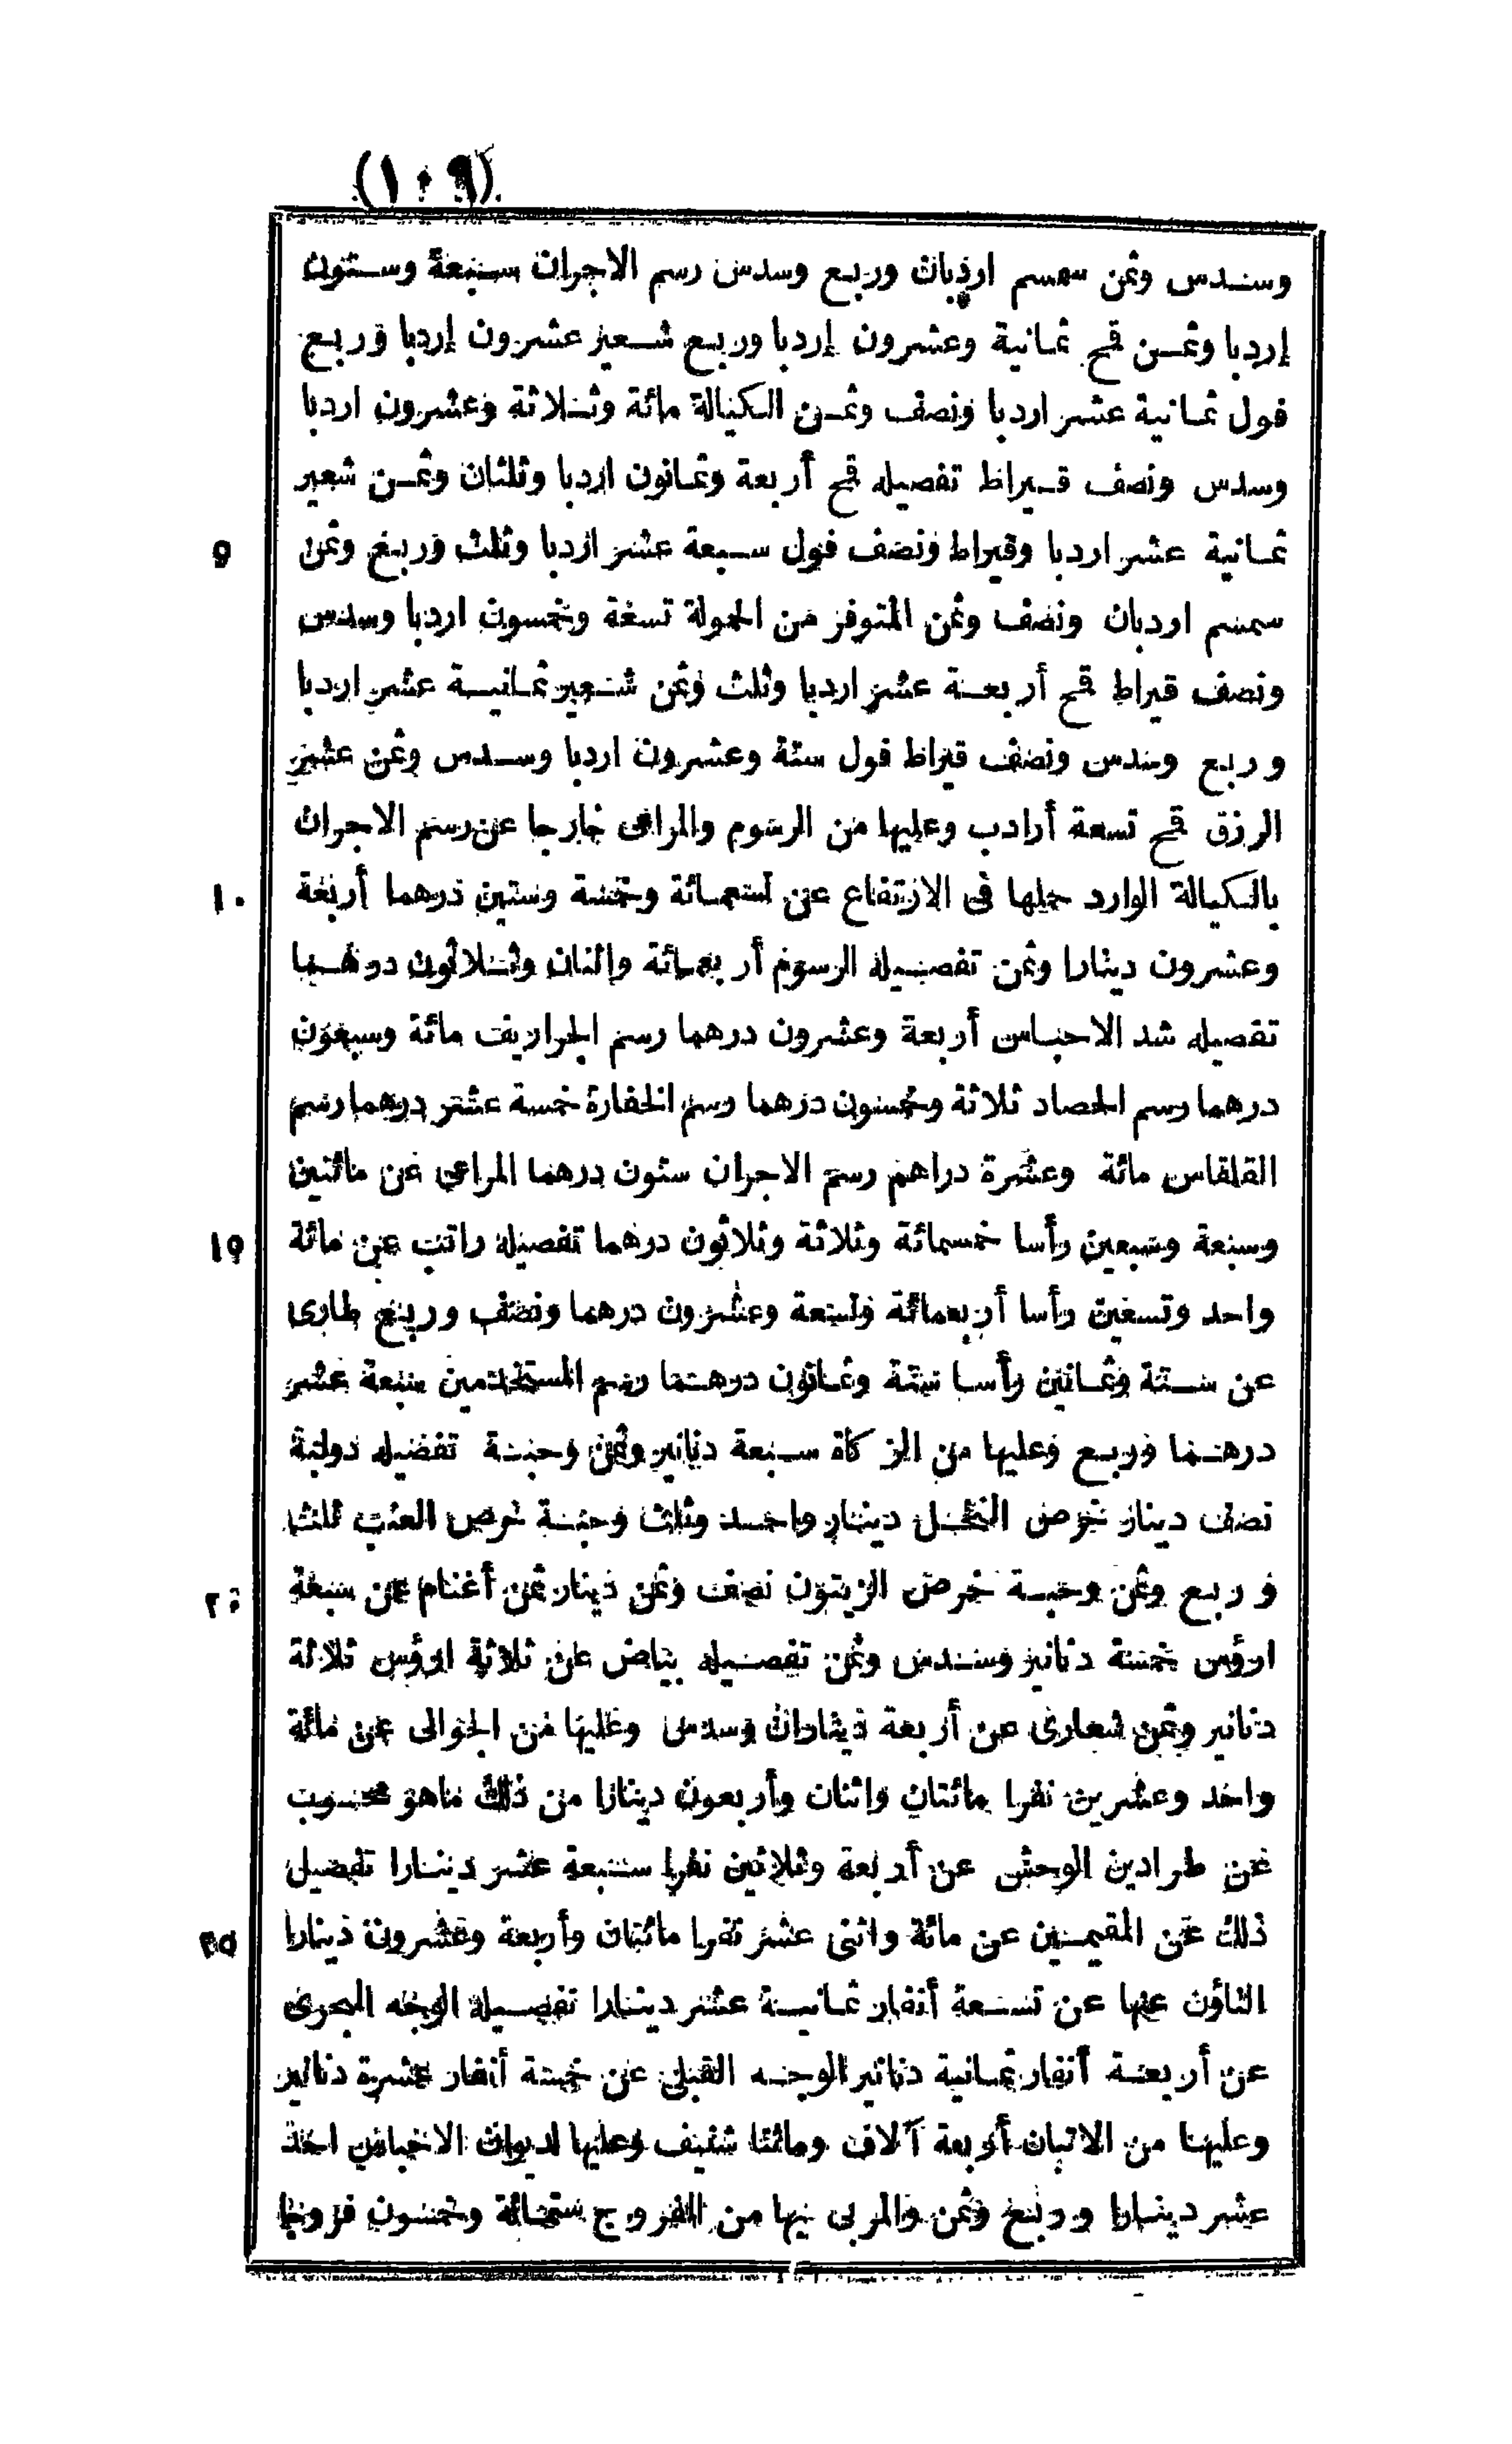 (١٠٩)
وسدس وثمن سمسم اردبان وربع وسدس رسم الاجران سبعة وستون
إردبا وثمن قمح ثمانية وعشرون إردبا وربع شعير عشرون إردبا وربع
فول ثمانية عشر اردبا ونصف وثمن الكيالة مائة وثلاثة وعشرون اردبا
وسدس ونصف قيراط تفصيله قمح أربعة وثمانون اردبا وثلثان وثمن شعير
ثمانية عشر اردبا وقيراط ونصف فول سبعة عشر اردبا وثلث وربع وثمن
٥
سمسم اردبان ونصف وثمن المتوفر من الحمولة تسعة وخمسون اردبا وسدس
ونصف قيراط قمح أربعة عشر اردبا وثلث وثمن شعير ثمانية عشر اردبا
وربع وسدس ونصف قيراط فول ستة وعشرون اردبا وسدس وثمن عشير
الرزق قمح تسعة أرادب وعليها من الرسوم والمراعى خارجا عن رسم الاجران
بالكيالة الوارد حملها فى الارتفاع عن تسعمائة وخمسة وستين درهما أربعة
١٠
وعشرون دينارا وثمن تفصيله الرسوم أربعمائة واثنان وثلاثون درهما
تفصيله شد الاحباس أربعة وعشرون درهما رسم الجراريف مائة وسبعون
درهما رسم الحصاد ثلاثة وخمسون درهما رسم الخفارة خمسة عشر درهما رسم
القلقاس مائة وعشرة دراهم رسم الاجران ستون درهما المراعى عن مائتين
وسبعة وسبعين رأسا خمسمائة وثلاثة وثلاثون درهما تفصيله راتب عن مائة
١٥
واحد وتسعين رأسا أربعمائة وتسعة وعشرون درهما ونصف وربع طارى
عن ستة وثمانين رأسا ستة وثمانون درهما رسم المستخدمين سبعة عشر
درهما وربع وعليها من الزكاة سبعة دنانير وثمن وحبة تفصيله دولبة
نصف دينار خرص النخل دينار واحد وثلث وحبة خرص العنب ثلث
وربع وثمن وحبة خرص الزيتون نصف وثمن دينار ثمن أغنام عن سبعة
٢٠
ارؤس خمسة دنانير وسدس وثمن تفصيله بياض عن ثلاثة ارؤس ثلاثة
دنانير وثمن شعارى عن أربعة ديناران وسدس وعليها من الجوالى عن مائة
واحد وعشرين نفرا مائتان واثنان وأربعون دينارا من ذلك ماهو محسوب
عن طرادين الوحش عن أربعة وثلاثين نفرا سبعة عشر دينارا تفصيل
ذلك عن المقيمين عن مائة واثنى عشر نفرا مائتان وأربعة وعشرون دينارا
٢٥
الناؤن عنها عن تسعة أنفار ثمانية عشر دينارا تفصيله الوجه البحرى
عن أربعة أنفار ثمانية دنانير الوجه القبلى عن خمسة أنفار عشرة دنانير
وعليها من الاتبان أربعة آلاف ومائتا شنيف وعليها لديوان الاحباس احد
عشر دينارا وربع وثمن والمربى فيها من الفروج ستمائة وخمسون فروجا